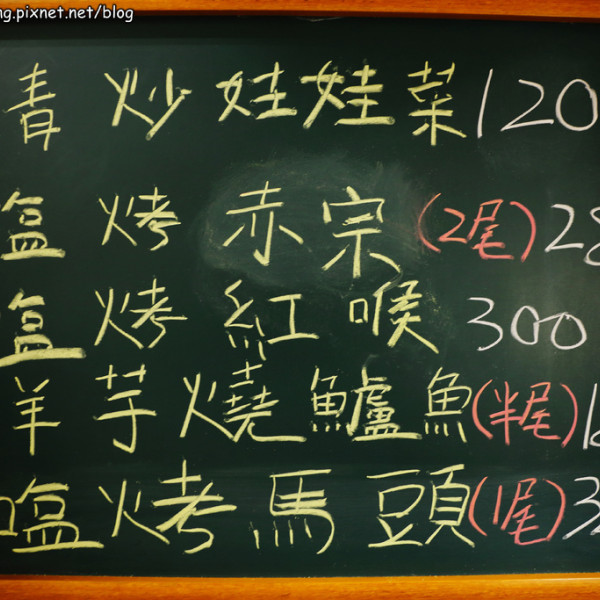 ng.pixnet.net/blog
青炒娃娃菜 120
塩烤赤宗(2尾) 28
塩烤紅喉 300
羊芋燒鱸魚(半尾) 1
塩烤馬頭(1尾) 3